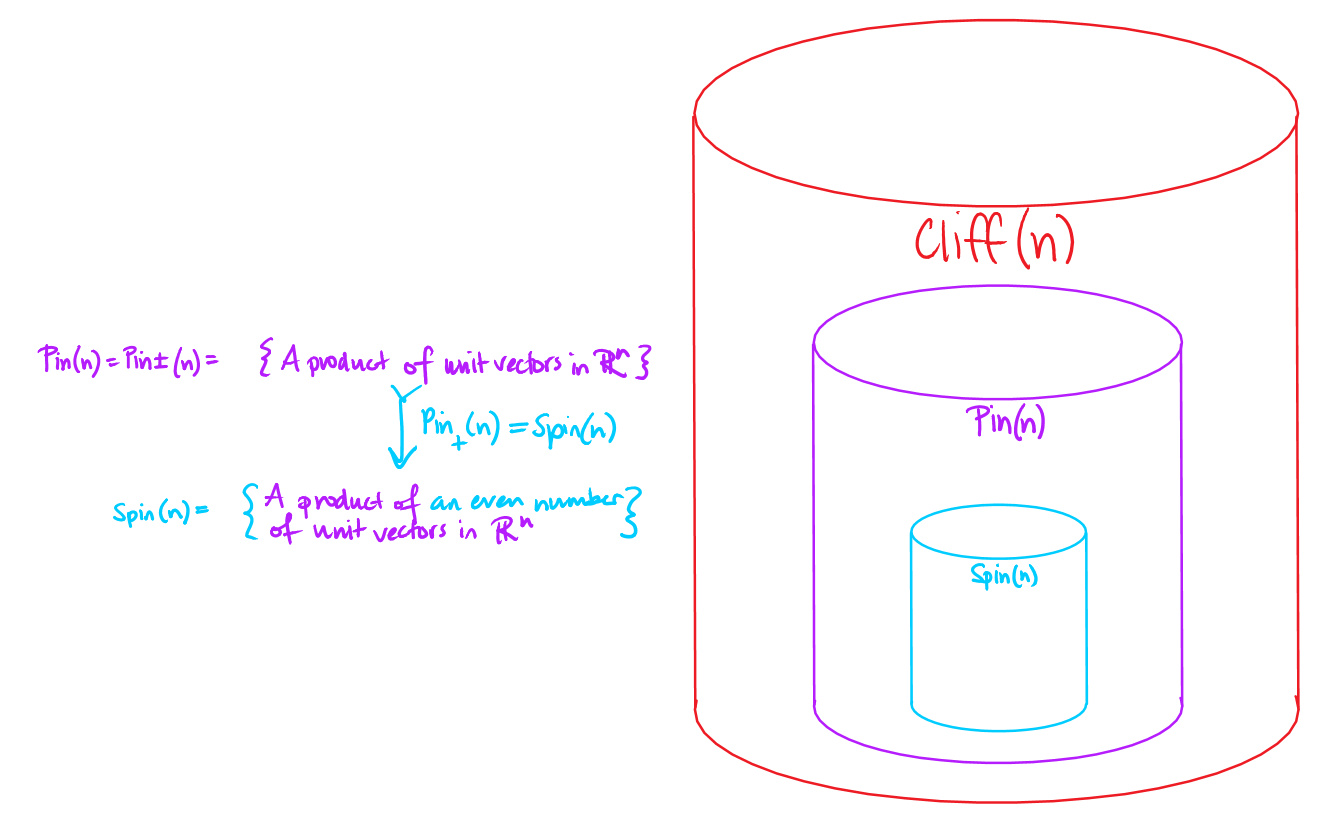 Cliff(n)
Pin(n) = Pin±(n) = { A product of unit vectors in ℝⁿ }
Pin₊(n) = Spin(n)
Pin(n)
Spin(n) = { A product of an even number
of unit vectors in ℝⁿ }
Spin(n)